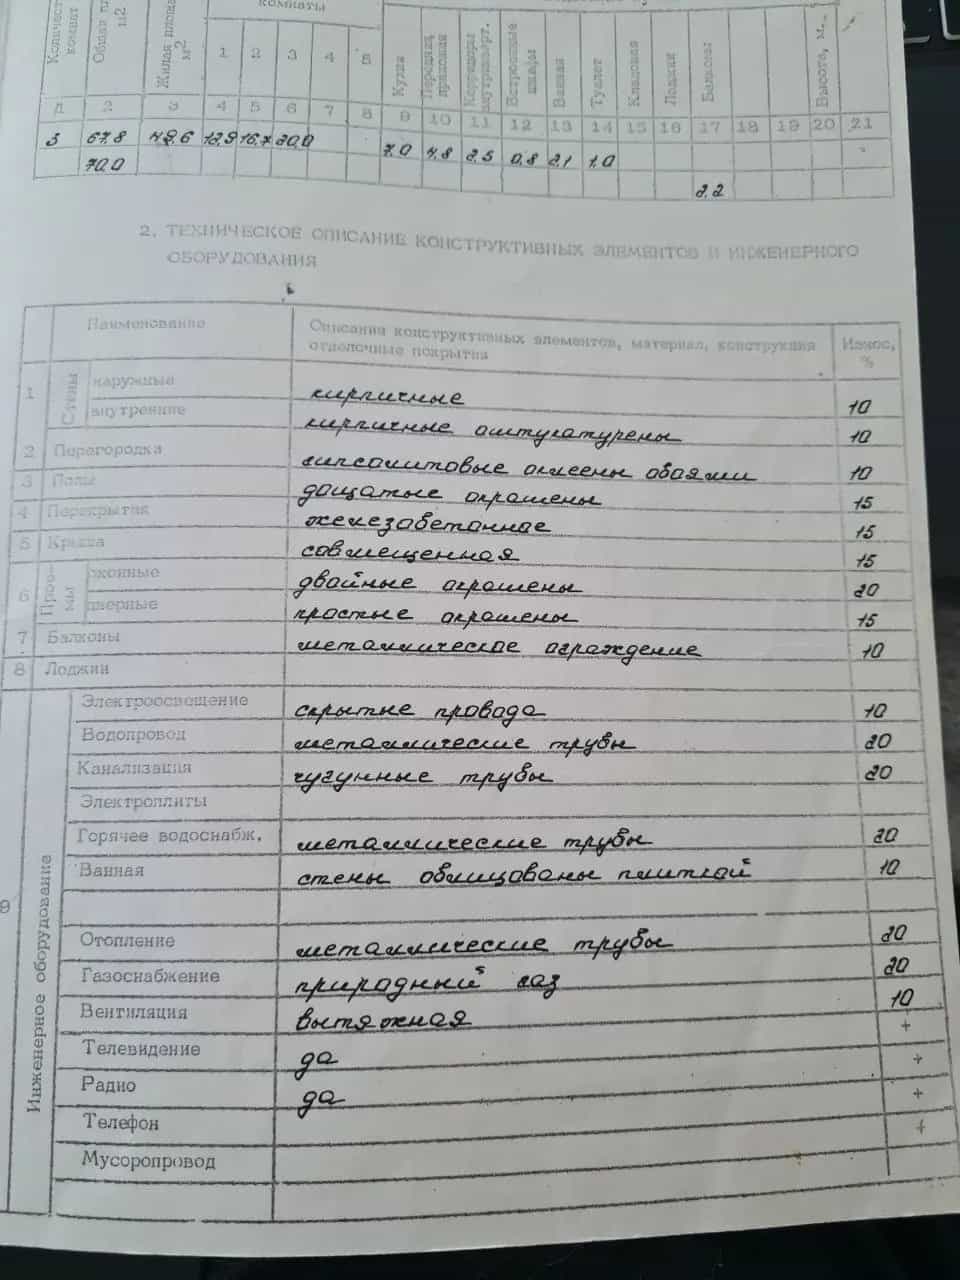 комнаты
Количест
комнат
Общая пл
м2
Жилая площ
м2
1 2 3 4 5
Кухня
Корридоры
внутриварт.
Встроенные
шкафы
Ванная
Туалет
Кладовая
Лоджии
Балконы
Высота, м.
1 2 3 4 5 6 7 8 9 10 11 12 13 14 15 16 17 18 19 20 21
3 67,8 49,6 12,9 16,7 20,0 7,0 4,8 2,5 0,8 2,1 1,0
70.0
2,2
2. ТЕХНИЧЕСКОЕ ОПИСАНИЕ КОНСТРУКТИВНЫХ ЭЛЕМЕНТОВ И ИНЖЕНЕРНОГО
ОБОРУДОВАНИЯ
Наименование Описания конструктивных элементов, материал, конструкция Износ,
отделочные покрытия %
1 Стены наружные кирпичные 10
внутренние кирпичные оштукатурены 10
2 Перегородка гипсолитовые оклеены обоями 10
3 Полы дощатые окрашены 15
4 Перекрытия железобетонное 15
5 Крыша совмещенная 15
6 Прое-
мы
оконные двойные окрашены 20
дверные простые окрашены 15
7 Балконы металлическое ограждение 10
8 Лоджии
9 Инженерное оборудование
Электроосвещение скрытые провода 10
Водопровод металлические трубы 20
Канализация чугунные трубы 20
Электроплиты
Горячее водоснабж. металлические трубы 20
Ванная стены облицованы плиткой 10
Отопление металлические трубы 20
Газоснабжение природный газ 20
Вентиляция вытяжная 10
+
Телевидение да +
Радио да +
Телефон +
Мусоропровод